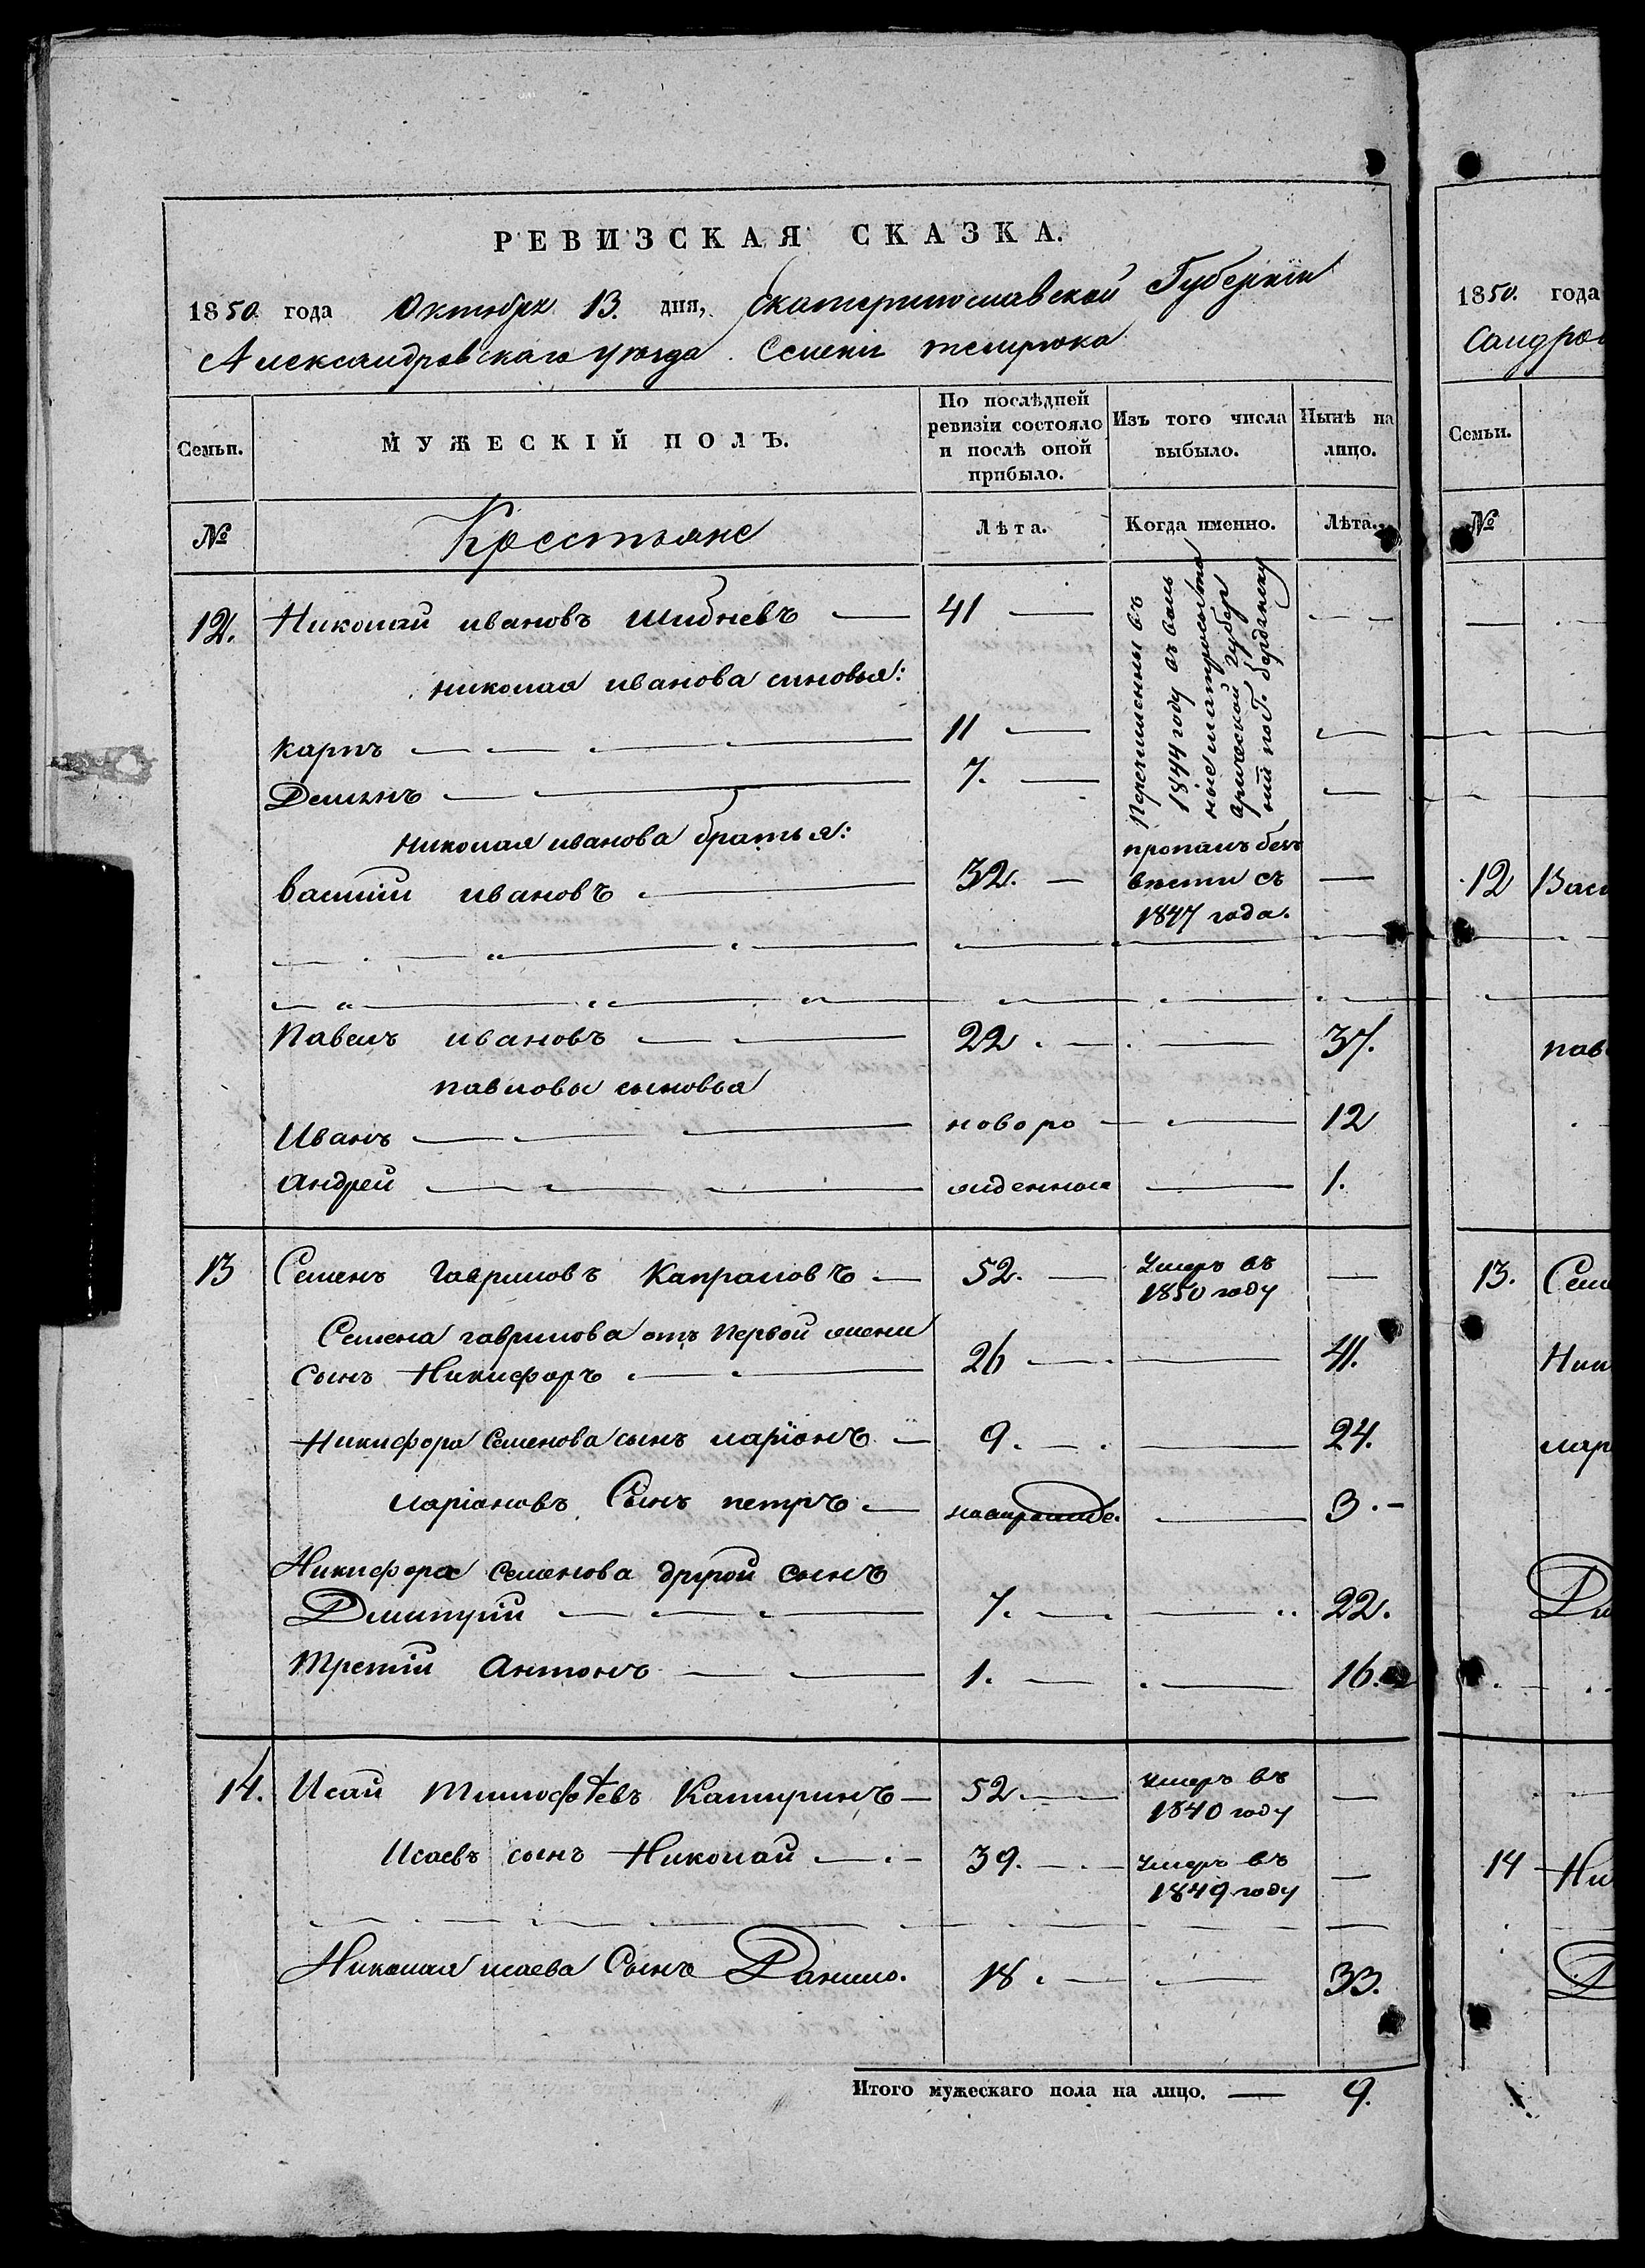 РЕВИЗСКАЯ СКАЗКА.
1850 года Октября 13. дня, Екатеринославской Губернiи
Александровскаго уѣзда Селенiя темрюка
Семьи. МУЖЕСКIЙ ПОЛЪ. По послѣдней ревизiи состояло и послѣ оной прибыло. Изъ того числа выбыло. Нынѣ на лицо.
№ Крестьяне Лѣта. Когда именно. Лѣта.
12. Николай ивановъ шибневъ — 41 —
Перечислены въ
1844 году въ воль
ные матросы та
врической губер
нiи по г. бердянску
николая иванова синовья:
карпъ — 11 —
Демянъ — 7. —
николая иванова братья:
василiй ивановъ — 32. — пропалъ безъ
вѣсти съ
1847 года.
Павелъ ивановъ — 22. — 37.
павловы сыновья
Иванъ — новоро — 12
андрей — жденные — 1.
13 Семенъ гавриловъ Капраловъ — 52. — Умеръ въ
1850 году
Семена гаврилова отъ первой жени
сынъ Никифоръ — 26 — 41.
Никифора Семенова сынъ ларiонъ — 9. — 24.
ларiоновъ Сынъ петръ — 3. -
Никифора семенова другой сынъ
Дмитрiй — 7. — 22.
третiй антонъ — 1. — 16.
14. Исай Тимофѣевъ Катиринъ — 52 — умеръ въ
1840 году
Исаевъ сынъ Николай — 39. — Умеръ въ
1849 году
Николая исаева Сынъ Данило. 18. — 33.
Итого мужескаго пола на лицо. — 9.
1850. года
Семьи.
№
12
13.
14